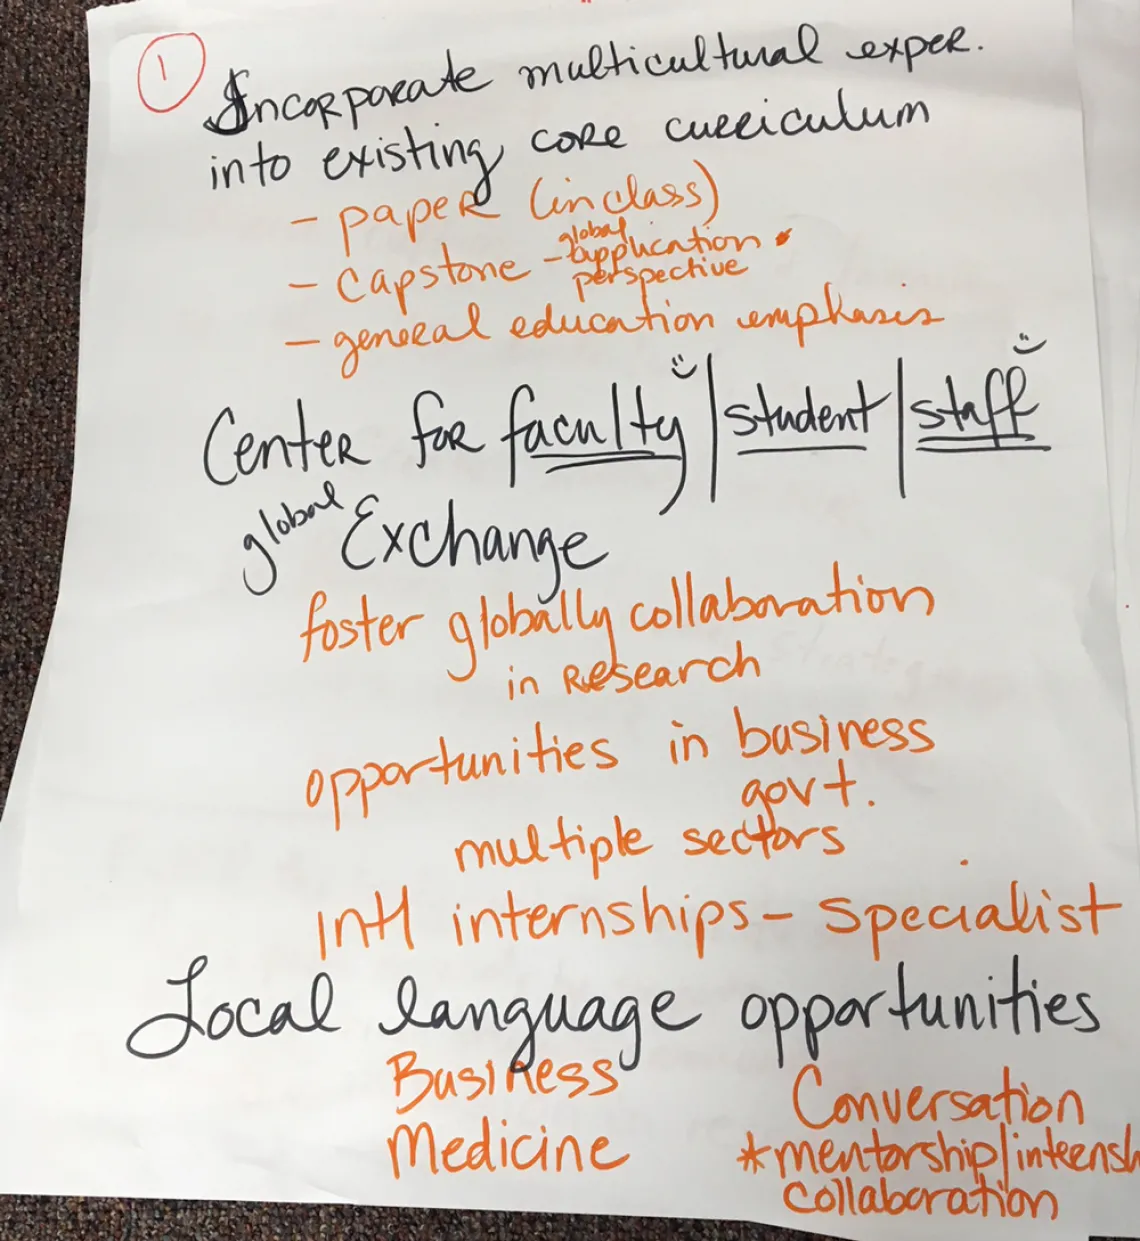 1
Incorporate multicultural exper.
into existing core curriculum
- paper (in class)
- capstone - global application
perspective
- general education emphasis
Center for faculty | student | staff
global Exchange
foster globally collaboration
in research
opportunities in business
govt.
multiple sectors
Int'l internships - specialist
Local language opportunities
Business
Medicine
Conversation
*mentorship/internsh
collaboration